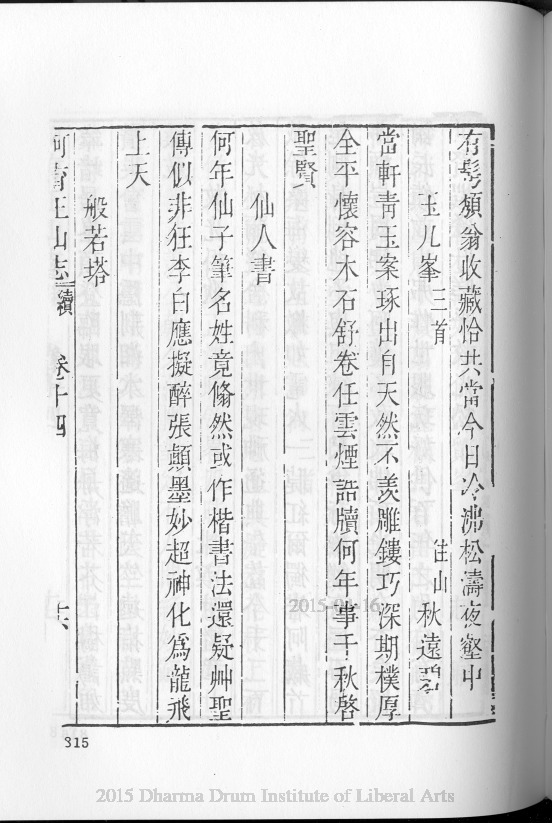 有髩頽翁收藏恰共當今日冷沸松濤夜壑中
玉几峯三首 住山秋遠碧
當軒靑玉案琢出自天然不羨雕鏤巧深期樸厚
全平懷容木石舒卷任雲煙誥牘何年事千秋啓
聖賢
仙人書
何年仙子筆名姓竟翛然或作楷書法還疑艸聖
傳似非狂李白應擬醉張顚墨妙超神化爲龍飛
上天
般若塔
阿育王山志續 卷十四 十六
315
2015-04-16
2015 Dharma Drum Institute of Liberal Arts